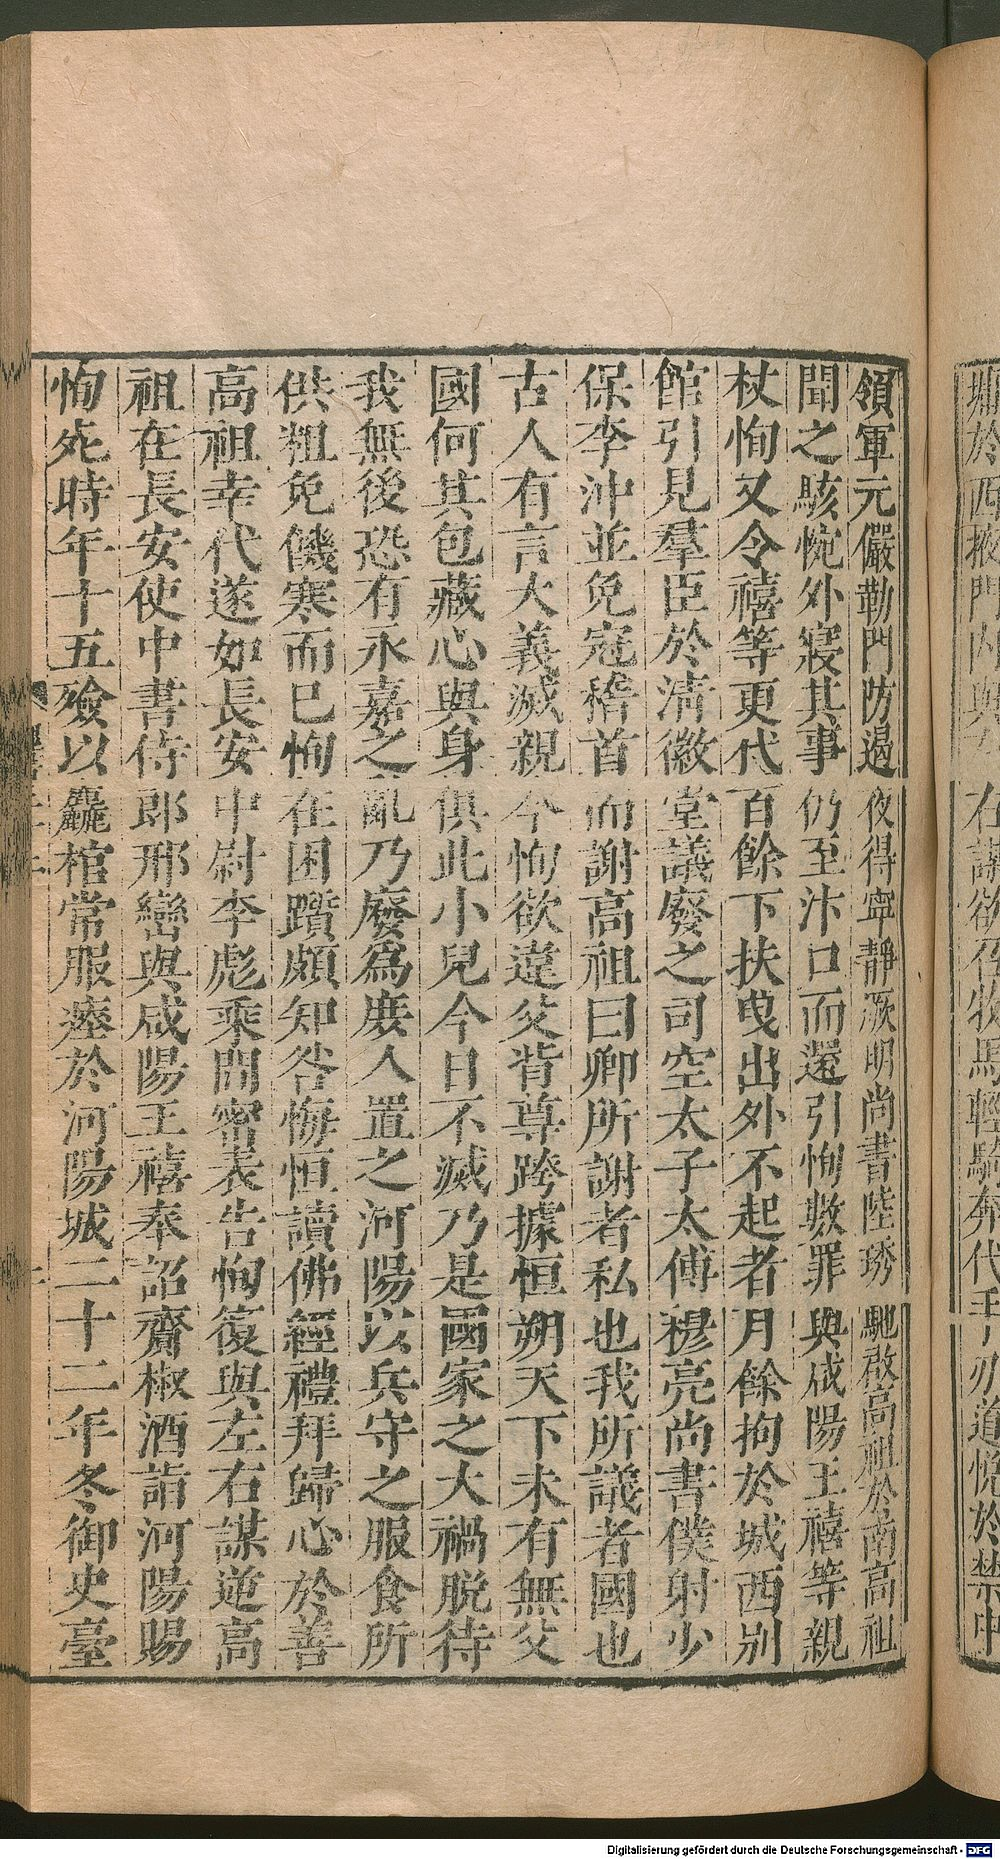 領軍元儼勒門防遏夜得寧靜厥明尚書陸琇馳啟高祖於南高祖
聞之駭惋外寢其事仍至汴口而還引恂數罪與咸陽王禧等親
杖恂又令禧等更代百餘下扶曳出外不起者月餘拘於城西別
館引見羣臣於清徽堂議廢之司空太子太傅穆亮尚書僕射少
保李沖並免冠稽首而謝高祖曰卿所謝者私也我所議者國也
古人有言大義滅親今恂欲違父背尊跨據恒朔天下未有無父
國何其包藏心與身俱此小兒今日不滅乃是國家之大禍脫待
我無後恐有永嘉之亂乃廢爲庶人置之河陽以兵守之服食所
供粗免饑寒而巳恂在困躓頗知咎悔恒讀佛經禮拜歸心於善
高祖幸代遂如長安中尉李彪乘間密表告恂復與左右謀逆高
祖在長安使中書侍郎邢巒與咸陽王禧奉詔齎椒酒詣河陽賜
恂死時年十五殮以麤棺常服瘞於河陽城二十二年冬御史臺
Digitalisierung gefördert durch die Deutsche Forschungsgemeinschaft - DFG